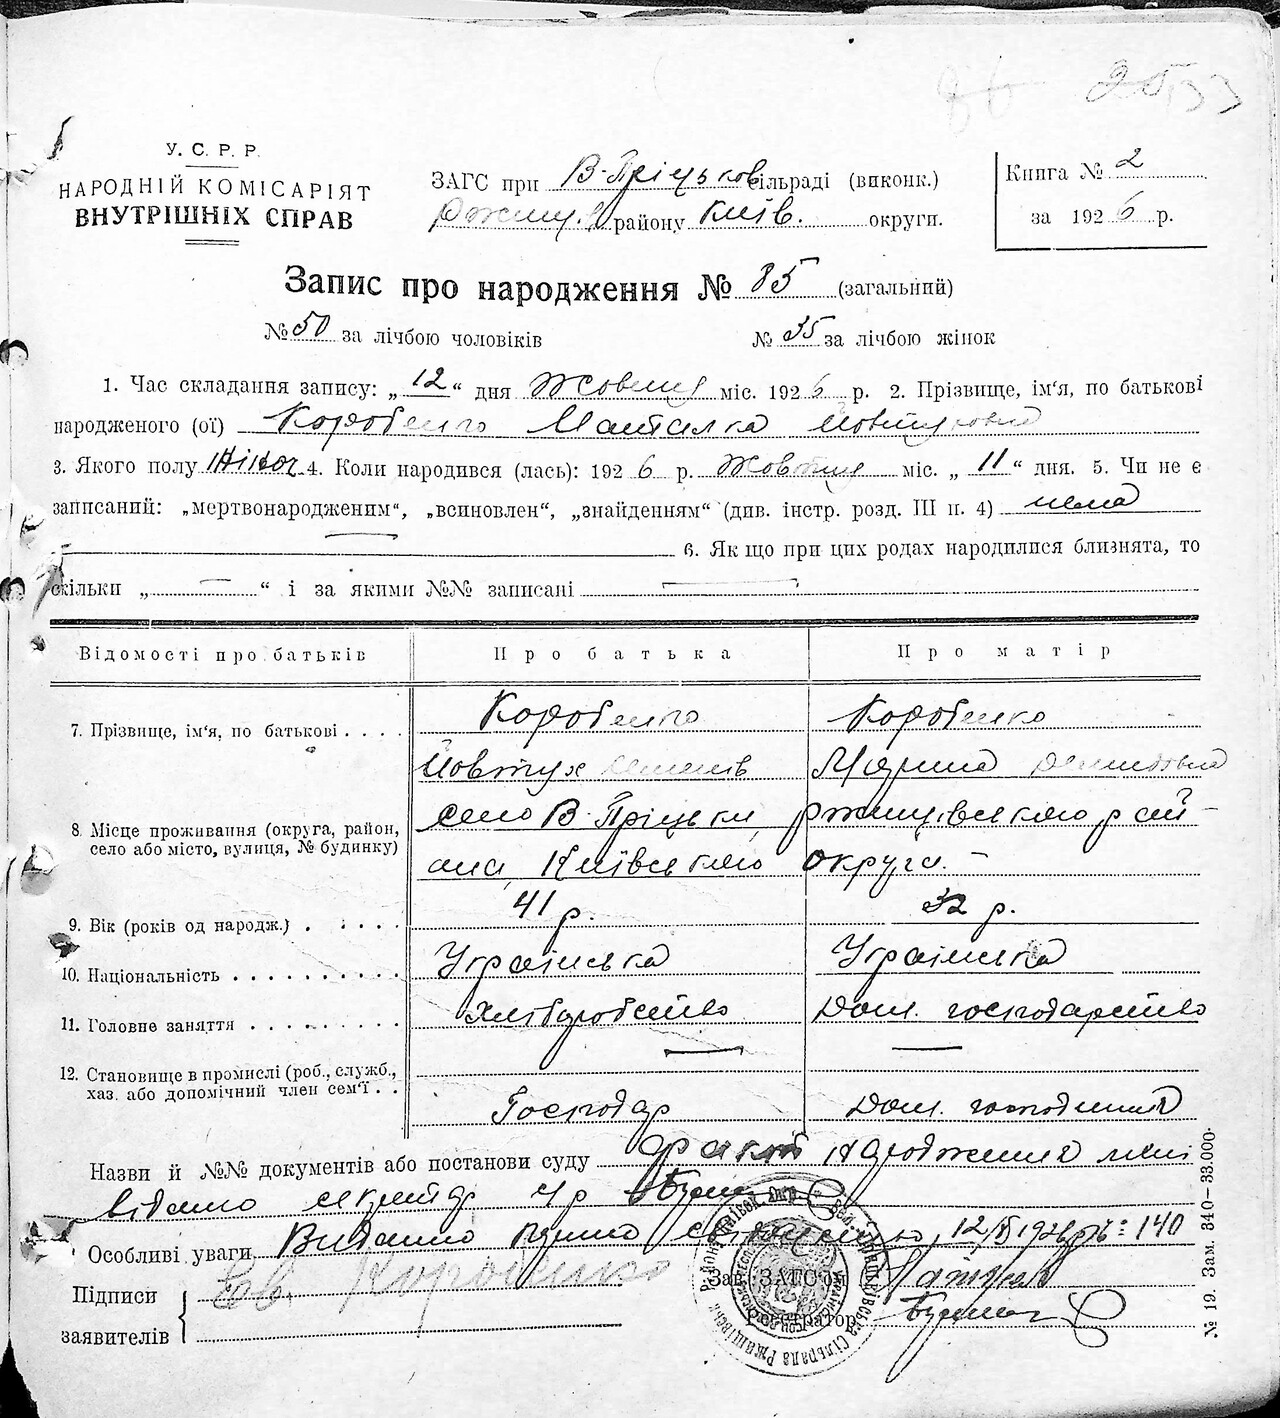 У. С. Р. Р.
НАРОДНІЙ КОМІСАРІЯТ
ВНУТРІШНІХ СПРАВ
ЗАГС при В-Пріцьков сільраді (виконк.)
Ржищ. району Київ. округи.
Книга № 2
за 1926 р.
Запис про народження № 85 (загальний)
№ 50 за лічбою чоловіків № 35 за лічбою жінок
1. Час складання запису: „12“ дня Жовтня міс. 1926 р. 2. Прізвище, ім‘я, по батькові
народженого (ої) Коробенко Наталка Йовтуховна
3. Якого полу Жіноч. 4. Коли народився (лась): 1926 р. Жовтня міс. „11“ дня. 5. Чи не є
записаний: „мертвонародженим“, „всиновлен“, „знайденням“ (див. інстр. розд. III п. 4) нема
6. Як що при цих родах народилися близнята, то
скільки „ — “ і за якими №№ записані —
Відомості про батьків Про батька Про матір
7. Прізвище, ім‘я, по батькові . . . . Коробенко Коробенко
Йовтух Семенів Марина Демидовна
8. Місце проживання (округа, район, село В-Пріцьки, Ржищівського рай-
село або місто, вулиця, № будинку) она, Київського округи. —
9. Вік (років од народж.) . . . . . 41 р. 32 р.
10. Національність . . . . . . . . . . Українська Українська
11. Головне заняття . . . . . . . . . Хліборобство Дом. господарство
12. Становище в промислі (роб., служб., — —
хаз. або допомічний член сем‘ї . . Господар Дом. господиня
Назви й №№ документів або постанови суду факт народження мені
відомо секретар
Особливі уваги Видано свідоцтво 12/X 1926 р № 140
Підписи
заявителів
Єв. Коробенко
Зав. ЗАГС‘ом
Реєстратор
№ 19. Зам. 340—33.000.